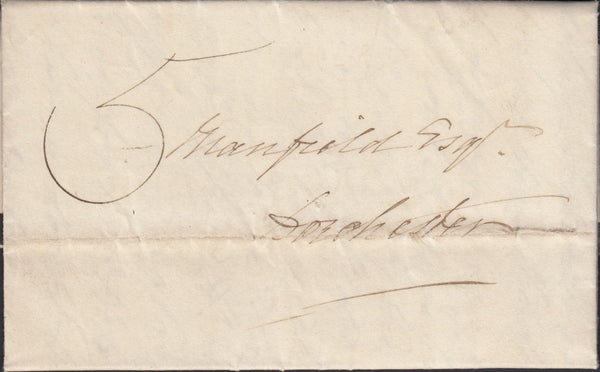 5 Manfield Esqr.
Dorchester